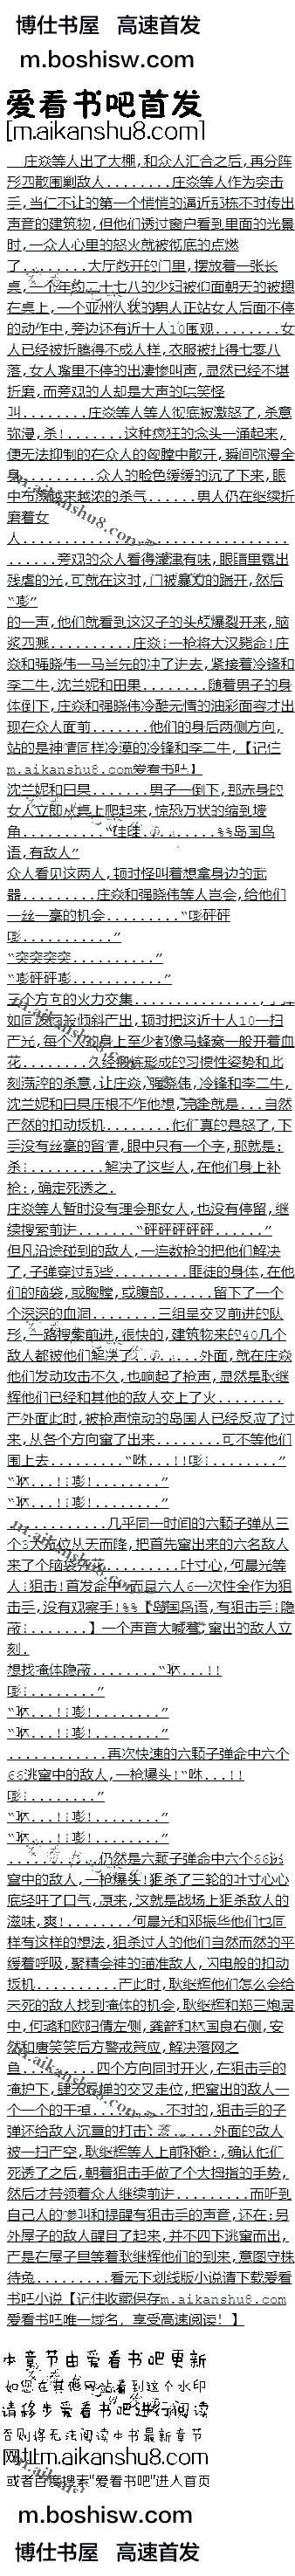 博仕书屋 高速首发
m.boshisw.com
爱看书吧首发
[m.aikanshu8.com]
庄焱等人出了大棚,和众人汇合之后,再分阵
形四散围剿敌人........庄焱等人作为突击
手,当仁不让的第一个悄悄的逼近那栋不时传出
声音的建筑物,但他们透过窗户看到里面的光景
时,一众人心里的怒火就被彻底的点燃
了........大厅敞开的门里,摆放着一张长
桌,一个年约二十七八的少妇被仰面朝天的被捆
在桌上,一个亚州人状的男人正站女人后面不停
的动作中,旁边还有近十人围观........女
人已经被折腾得不成人样,衣服被扯得七零八
落,女人嘴里不停的出凄惨叫声,显然已经不堪
折磨,而旁观的人却是大声的哄笑怪
叫........庄焱等人等人彻底被激怒了,杀意
弥漫,杀!.......这种疯狂的念头一涌起来,
便无法抑制的在众人的胸膛中散开,瞬间弥漫全
身.........众人的脸色缓缓的沉了下来,眼
中布满越来越浓的杀气......男人仍在继续折
磨着女
人................................
......旁观的众人看得津津有味,眼睛里露出
残虐的光,可就在这时,门被轰的踹开,然后
“嘭”
的一声,他们就看到这汉子的头颅爆裂开来,脑
浆四溅..........庄焱一枪将大汉毙命!庄
焱和强晓伟一马当先的冲了进去,紧接着冷锋和
李二牛,沈兰妮和田果........随着男子的身
体倒下,庄焱和强晓伟冷酷无情的油彩面容才出
现在众人面前.......他们的身后两侧方向,
站的是神情同样冷漠的冷锋和李二牛,【记住
m.aikanshu8.com爱看书吧】
沈兰妮和田果.......男子一倒下,那赤身的
女人立即从桌上爬起来,惊恐万状的缩到墙
角..........“哇哇........%%岛国鸟
语,有敌人”
众人看见这两人,顿时怪叫着想拿身边的武
器.........庄焱和强晓伟等人岂会,给他们
一丝一毫的机会.........“嘭砰砰
嘭...........”
“突突突突..........”
“嘭砰砰嘭...........”
三个方向的火力交集
如同泼雨般倾斜产出,顿时把这近十人10一扫
产光,每个人的身上至少都像马蜂窝一般开着血
花........久经锻炼形成的习惯性姿势和此
刻满腔的杀意,让庄焱,强晓伟,冷锋和李二牛,
沈兰妮和田果压根不作他想,完全就是...当然
产然的扣动扳机........他们真的是怒了,下
手没有丝毫的留情,眼中只有一个字,那就是:
杀!.........解决了这些人,在他们身上补
枪:,确定死透之.
庄焱等人暂时没有理会那女人,也没有停留,继
续搜索前进.......“砰砰砰砰砰......”
但凡沿途碰到的敌人,一连数枪的把他们解决
了,子弹穿过那些.........匪徒的身体,在他
们的脑袋,或胸膛,或腹部......留下了一个
个深深的血洞........三组呈交叉前进的队
形,一路搜索前进,很快的,建筑物来的40几个
敌人都被他们解决了........外面,就在庄焱
他们发动攻击不久,也响起了枪声,显然是耿继
辉他们已经和其他的敌人交上了火........
产外面此时,被枪声惊动的岛国人已经反应了过
来,从各个方向窜了出来........可不等他们
围上去.........“咻...!!嘭!........”
“咻...!!嘭!........”
“咻...!!嘭!........”
............几乎同一时间的六颗子弹从三
个方位从天而降,把首先窜出来的六名敌人
来了个脑袋..........叶寸心,何晨光等
人:狙击!首发命中!而且六人6一次性全作为狙
击手,没有观察手!%%【岛国鸟语,有狙击手!隐
蔽!.......】一个声音大喊着,窜出的敌人立
刻.
想找掩体隐蔽........“咻...!!
嘭!........”
“咻...!!嘭!........”
“咻...!!嘭!........”
............再次快速的六颗子弹命中六个
66逃窜中的敌人,一枪爆头!“咻...!!
嘭!........”
“咻...!!嘭!........”
“咻...!!嘭!........”
...........仍然是六颗子弹命中六个66逃
窜中的敌人,一枪爆头!狙杀了三轮的叶寸心心
底轻吁了口气,原来,这就是战场上狙杀敌人的
滋味,爽!........何晨光和邓振华他们也同
样有这样的想法,狙杀过人的他们当然而然的平
缓着呼吸,聚精会神的瞄准敌人,闪电般的扣动
扳机..........产此时,耿继辉他们怎么会给
未死的敌人找到掩体的机会,耿继辉和郑三炮居
中,何璐和欧阳倩左侧,龚箭和林国良右侧,安
然和唐笑笑后方警戒策应,解决落网之
鱼.........四个方向同时开火,在狙击手的
掩护下,肆无忌惮的交叉走位,把窜出的敌人一
个一个的干掉.........不时的,狙击手的子
弹还给敌人沉重的打击..........外面的敌人
被一扫产空,耿继辉等人上前补枪:,确认他们
死透了之后,朝着狙击手做了个大拇指的手势,
然后才带领着众人继续前进.........而听到
自己人的惨叫和提醒有狙击手的声音,还在:另
外屋子的敌人醒目了起来,并不四下逃窜而出,
产是在屋子里等着耿继辉他们的到来,意图守株
待兔.........看无下划线版小说请下载爱看
书吧小说【记住收藏保存m.aikanshu8.com
爱看书吧唯一域名，享受高速阅读!】
本章节由爱看书吧更新
如您在其他网站看到这个水印
请移步爱看书吧进行阅读
否则将无法阅读本书最新章节
网址m.aikanshu8.com
或者百度搜索“爱看书吧”进入首页
m.boshisw.com
博仕书屋 高速首发